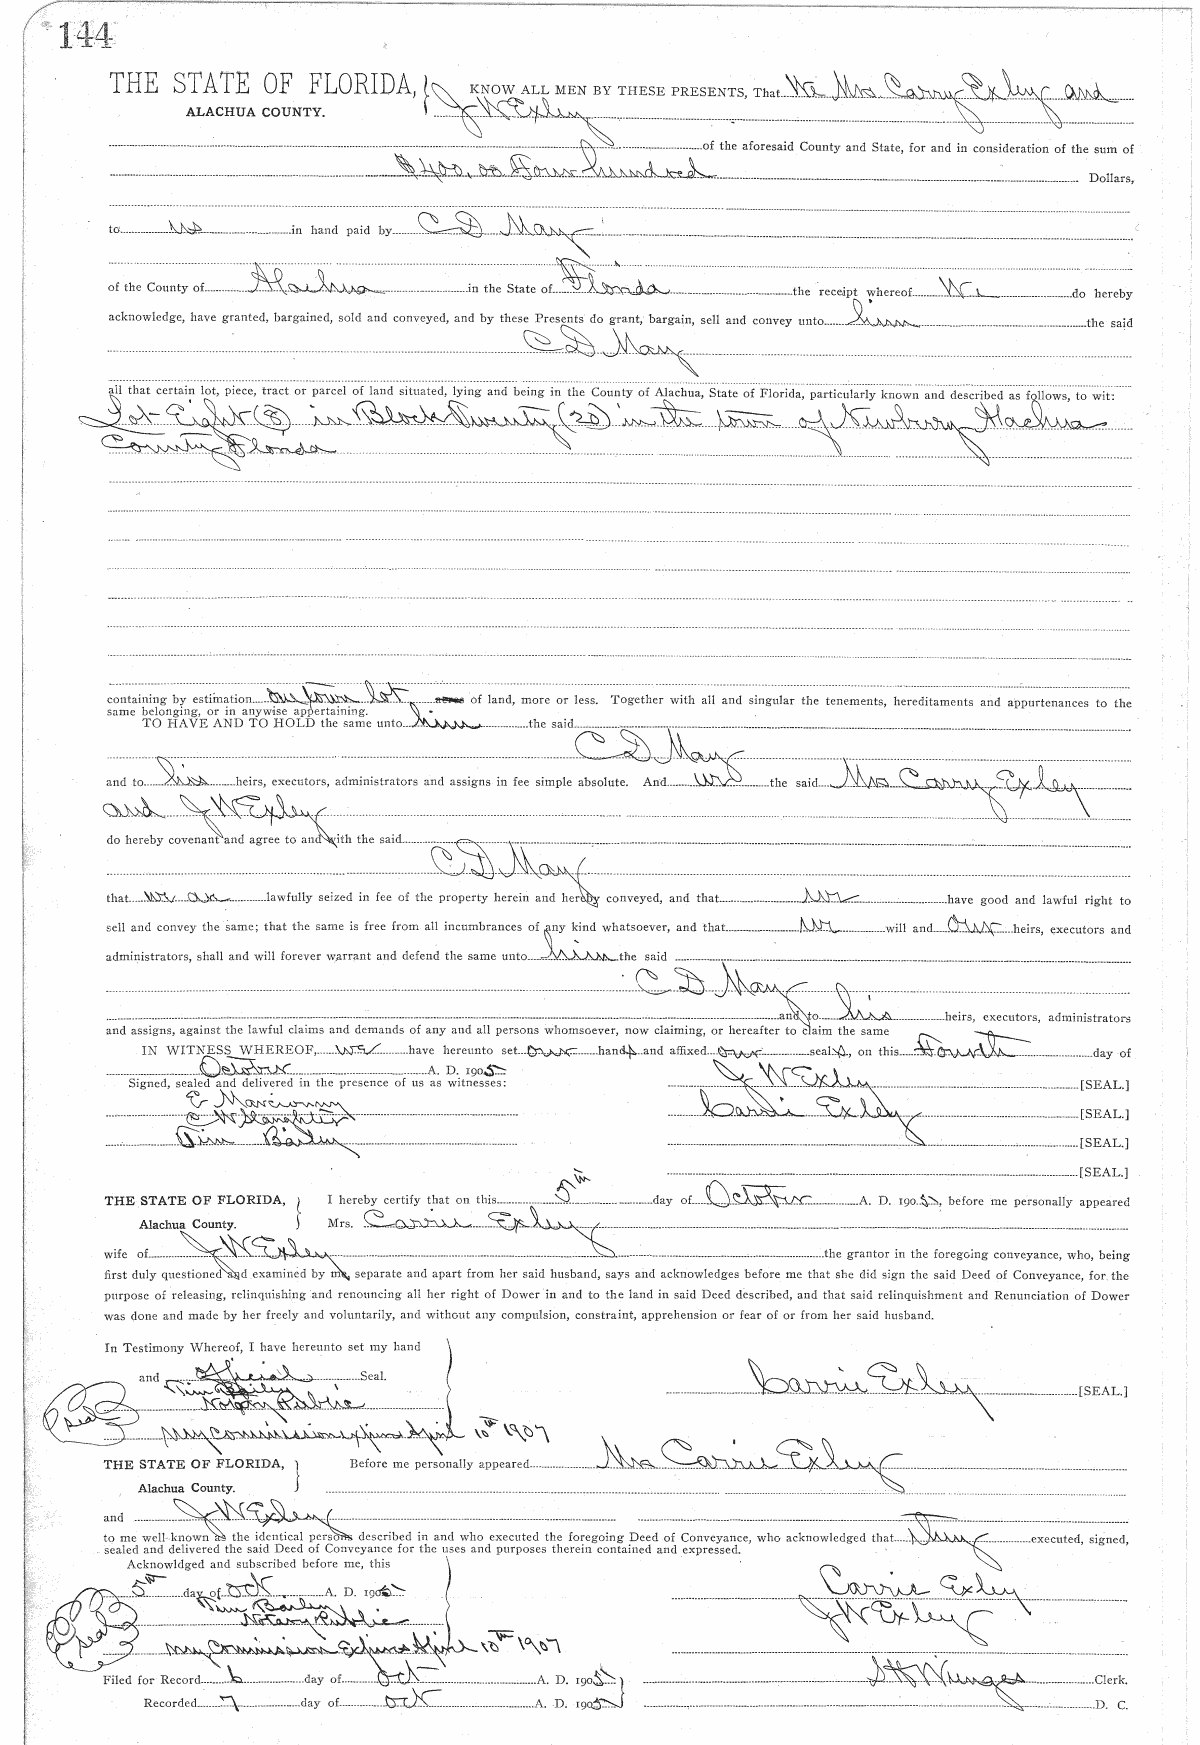 144
THE STATE OF FLORIDA, KNOW ALL MEN BY THESE PRESENTS, That We Mrs Carry Exley and
ALACHUA COUNTY. J W Exley
of the aforesaid County and State, for and in consideration of the sum of
$400.00 Four hundred Dollars,
to us in hand paid by C D May
of the County of Alachua in the State of Florida the receipt whereof We do hereby
acknowledge, have granted, bargained, sold and conveyed, and by these Presents do grant, bargain, sell and convey unto him the said
C D May
all that certain lot, piece, tract or parcel of land situated, lying and being in the County of Alachua, State of Florida, particularly known and described as follows, to wit:
Lot Eight (8) in Block Twenty (20) in the town of Newberry Alachua
County Florida
containing by estimation one town lot acres of land, more or less. Together with all and singular the tenements, hereditaments and appurtenances to the
same belonging, or in anywise appertaining.
TO HAVE AND TO HOLD the same unto him the said
C D May
and to his heirs, executors, administrators and assigns in fee simple absolute. And we the said Mrs Carry Exley
and J W Exley
do hereby covenant and agree to and with the said
C D May
that we are lawfully seized in fee of the property herein and hereby conveyed, and that we have good and lawful right to
sell and convey the same; that the same is free from all incumbrances of any kind whatsoever, and that we will and our heirs, executors and
administrators, shall and will forever warrant and defend the same unto him the said
C D May
and to his heirs, executors, administrators
and assigns, against the lawful claims and demands of any and all persons whomsoever, now claiming, or hereafter to claim the same
IN WITNESS WHEREOF, we have hereunto set our hands and affixed our seals, on this Fourth day of
October A. D. 1905
Signed, sealed and delivered in the presence of us as witnesses: J W Exley [SEAL.]
E
C W Slaughter Carrie Exley [SEAL.]
Tim Bailey [SEAL.]
[SEAL.]
THE STATE OF FLORIDA, I hereby certify that on this 5th day of October A. D. 1905, before me personally appeared
Alachua County. Mrs. Carrie Exley
wife of J W Exley the grantor in the foregoing conveyance, who, being
first duly questioned and examined by me, separate and apart from her said husband, says and acknowledges before me that she did sign the said Deed of Conveyance, for the
purpose of releasing, relinquishing and renouncing all her right of Dower in and to the land in said Deed described, and that said relinquishment and Renunciation of Dower
was done and made by her freely and voluntarily, and without any compulsion, constraint, apprehension or fear of or from her said husband.
In Testimony Whereof, I have hereunto set my hand
and official Seal.
Tim Bailey Carrie Exley [SEAL.]
Notary Public
seal
My Commission expires April 10th 1907
THE STATE OF FLORIDA, Before me personally appeared Mrs Carrie Exley
Alachua County.
and J W Exley
to me well known as the identical persons described in and who executed the foregoing Deed of Conveyance, who acknowledged that they executed, signed,
sealed and delivered the said Deed of Conveyance for the uses and purposes therein contained and expressed.
Acknowldged and subscribed before me, this
5th day of Oct A. D. 1905 Carrie Exley
Tim Bailey J W Exley
Notary Public
seal
My Commission Expires April 10th 1907
Filed for Record 6 day of Oct A. D. 1905 S H Wienges Clerk.
Recorded 7 day of Oct A. D. 1905 D. C.